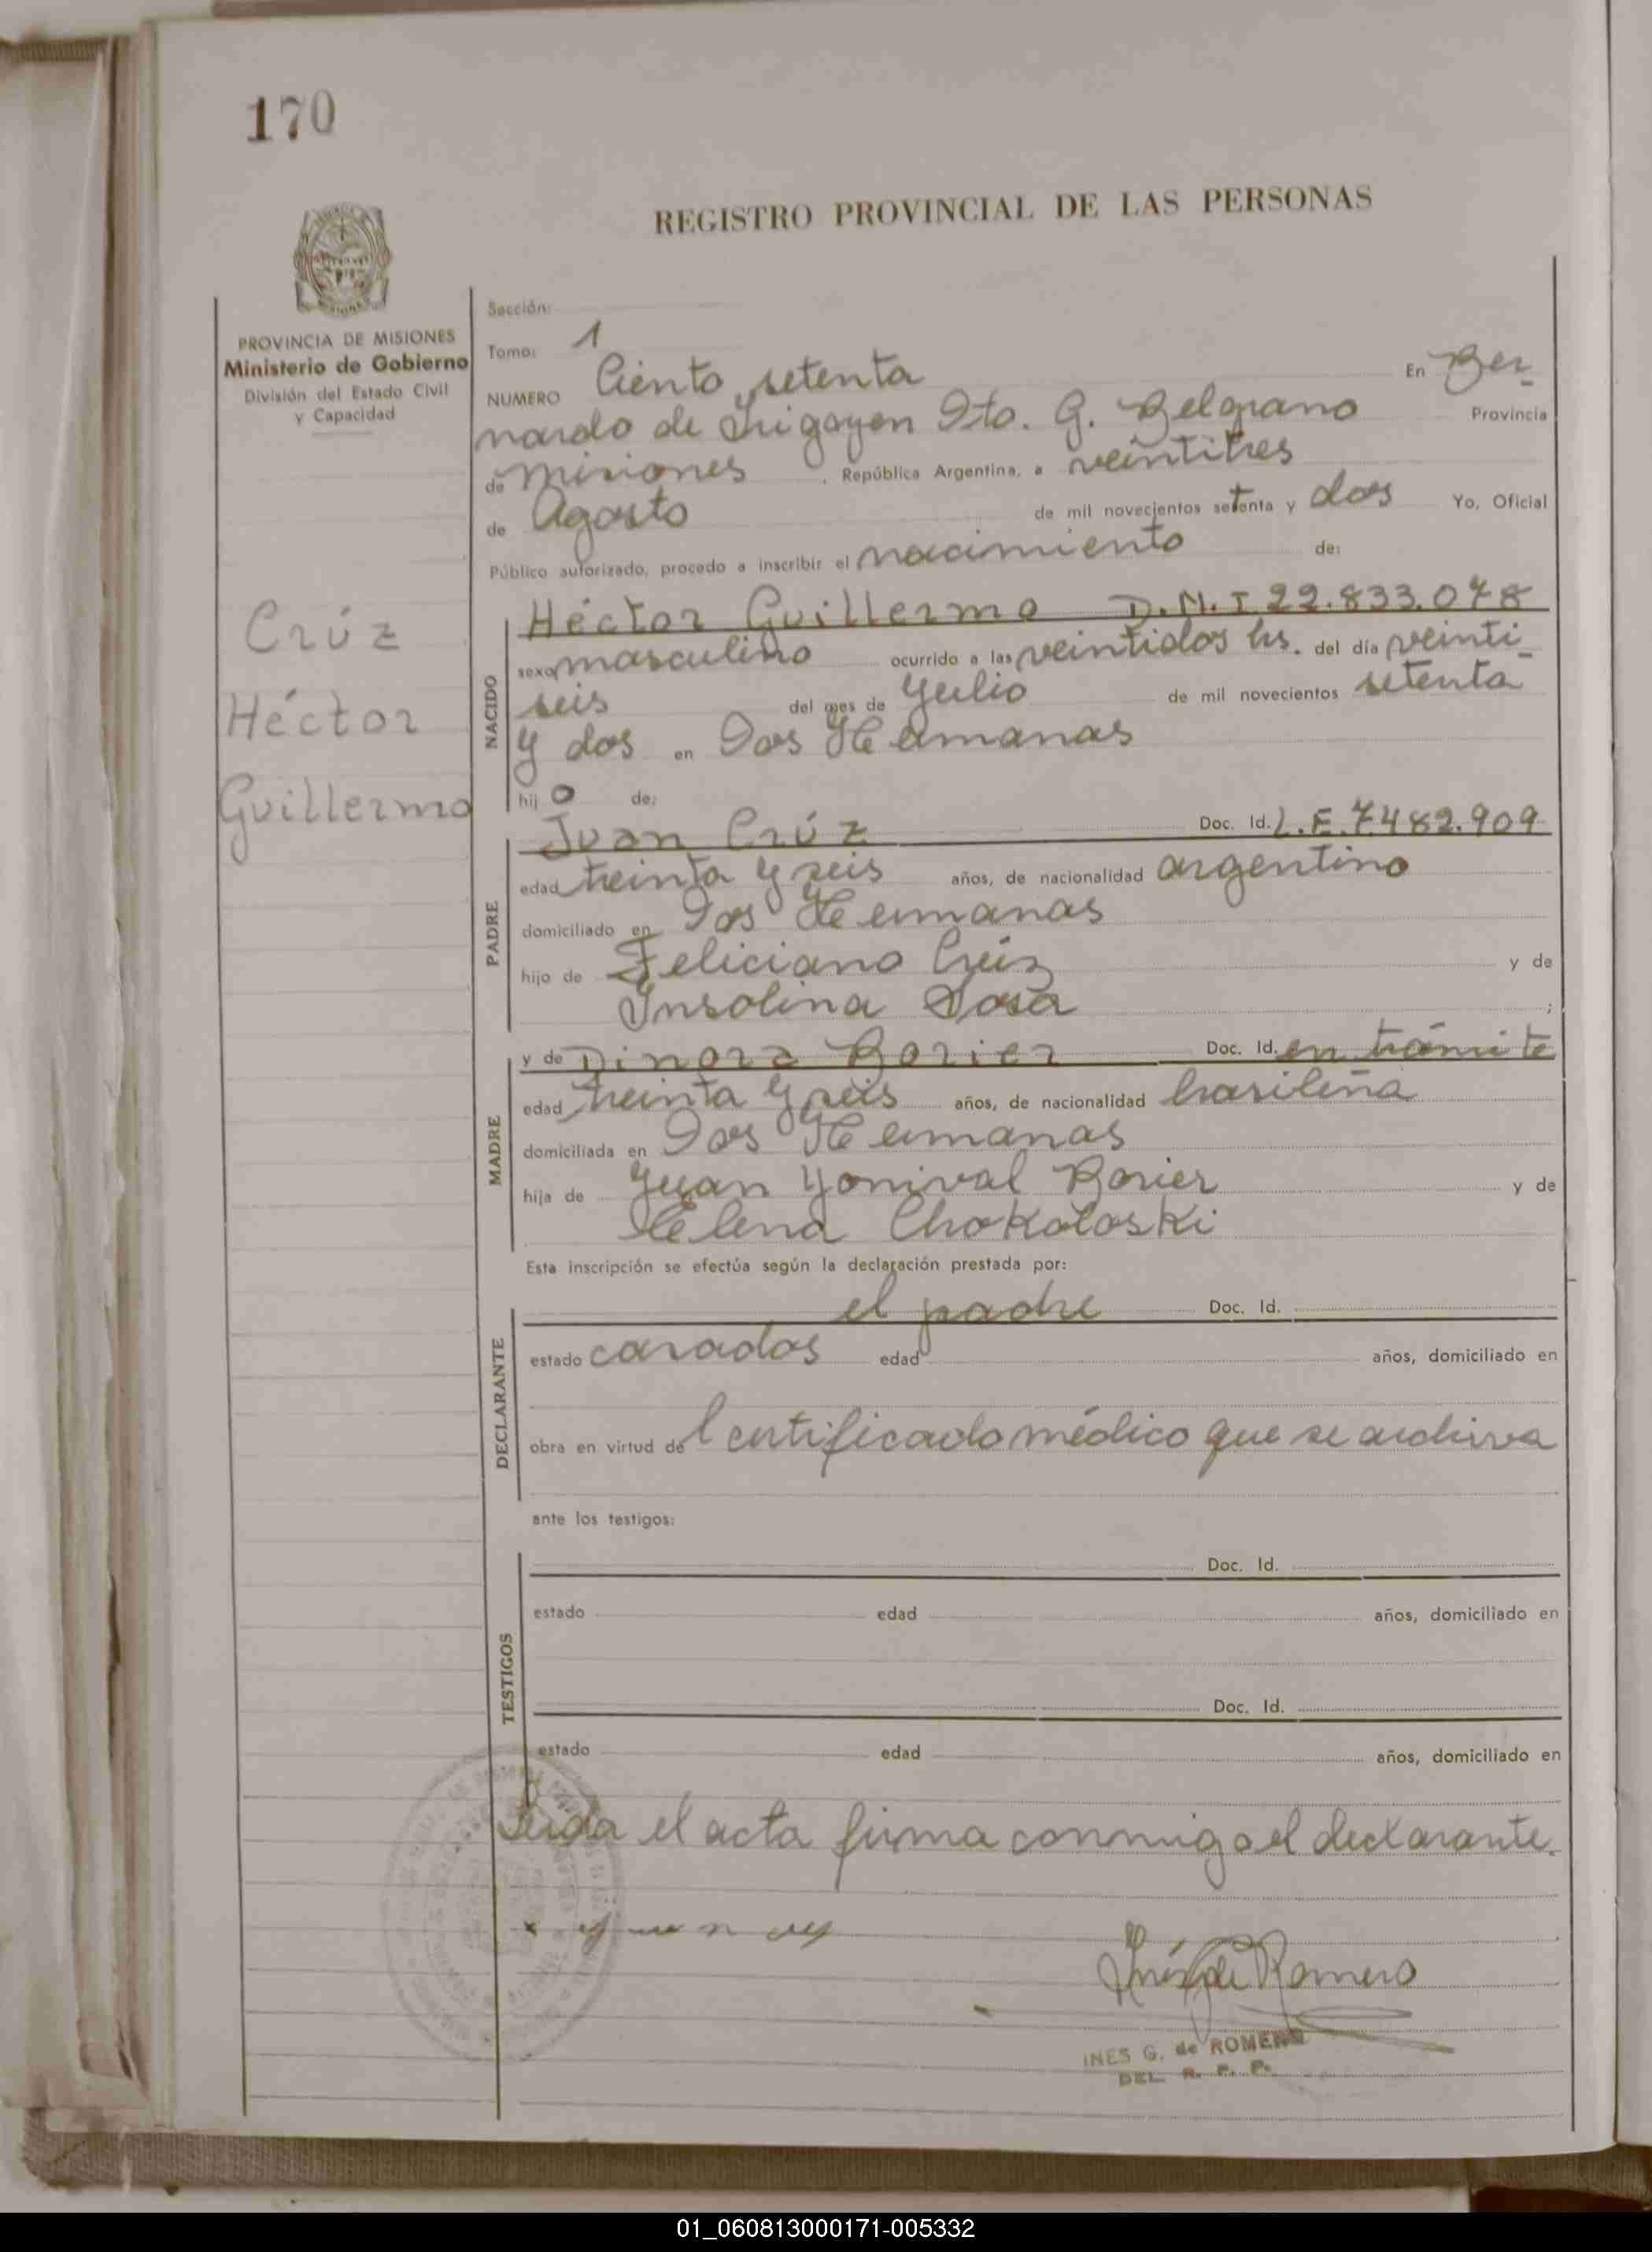 170
REGISTRO PROVINCIAL DE LAS PERSONAS
PROVINCIA DE MISIONES
Ministerio de Gobierno
División del Estado Civil
y Capacidad
Crúz
Héctor
Guillermo
Sección:
Tomo: 1
NUMERO Ciento setenta En Ber-
nardo de Irigoyen Dto. G. Belgrano Provincia
de Misiones, República Argentina, a veintitres
de Agosto de mil novecientos setenta y dos Yo, Oficial
Público autorizado, procedo a inscribir el nacimiento de:
NACIDO
Héctor Guillermo D.N.I 22.833.078
sexo masculino ocurrido a las veintidos hs. del día veinti-
seis del mes de Julio de mil novecientos setenta
y dos en Dos Hermanas
hijo de:
PADRE
Juan Crúz Doc. Id. L.E. 7482.909
edad treinta y seis años, de nacionalidad argentino
domiciliado en Dos Hermanas
hijo de Feliciano Crúz y de
Insolina Sosa ;
MADRE
y de Dinora Borier Doc. Id. en trámite
edad treinta y seis años, de nacionalidad brasileña
domiciliada en Dos Hermanas
hija de Juan Yonival Borier y de
Elena Chokaloski
Esta inscripción se efectúa según la declaración prestada por:
DECLARANTE
el padre Doc. Id.
estado casados edad años, domiciliado en
obra en virtud del certificado médico que se archiva
ante los testigos:
TESTIGOS
Doc. Id.
estado edad años, domiciliado en
Doc. Id.
estado edad años, domiciliado en
Leída el acta firma conmigo el declarante.
Inés G de Romero
INES G. de ROMERO
DEL. R. P. P.
01_060813000171-005332